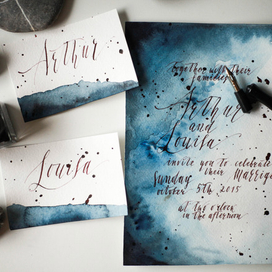 Arthur
Louisa
together with their
families
Arthur
and
Louisa
invite you to celebrate
their Marriage
Sunday
october 5th 2015
at two o'clock
in the afternoon